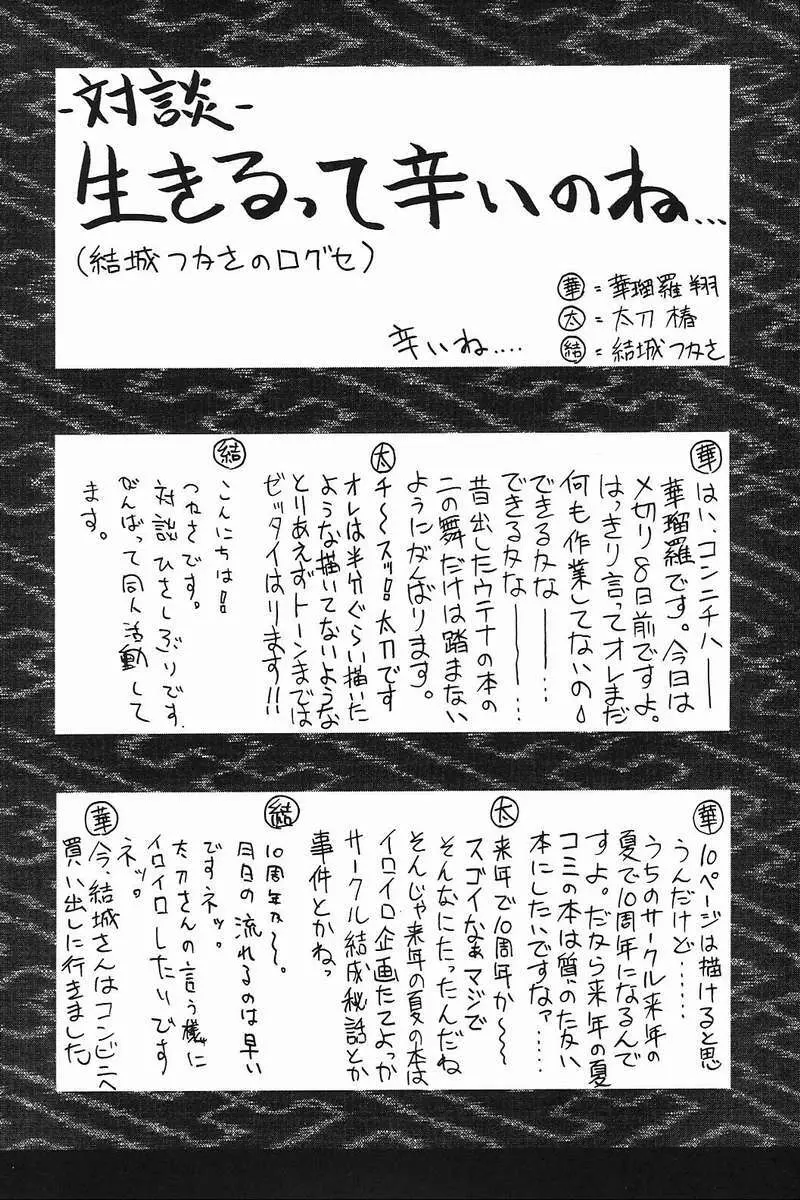 -対談-
生きるって辛いのね…
（結城つかさのログセ）
華=華瑠羅翔
太=太刀椿
結=結城つかさ
辛いね‥‥
華
はい、コンニチハ――
華瑠羅です。今日は
〆切り8日前ですよ。
はっきり言ってオレまだ
何も作業してないの
できるかな――‥
できるかな――‥
昔出したウテナの本の
二の舞だけは踏まない
ようにがんばります。
太
チ〜スッ!!太刀です
オレは半分ぐらい描いた
ような描いてないような
とりあえずトーンまでは
ゼッタイはります!!
結
こんにちは!!
つかさです。
対談ひさしぶりです。
がんばって同人活動して
ます。
華
10ページは描けると思
うんだけど‥‥‥
うちのサークル来年の
夏で10周年になるんで
すよ。だから来年の夏
コミの本は質のたかい
本にしたいですなァ‥‥
太
来年で10周年か〜〜
スゴイなぁマジで
そんなにたったんだね
そんじゃ来年の夏の本は
イロイロ企画たてよっか
サークル結成秘話とか
事件とかねっ
結
10周年か〜。
月日の流れるのは早い
ですネッ。
太刀さんの言う様に
イロイロしたいです
ネッ。
華
今、結城さんはコンビニへ
買い出しに行きました